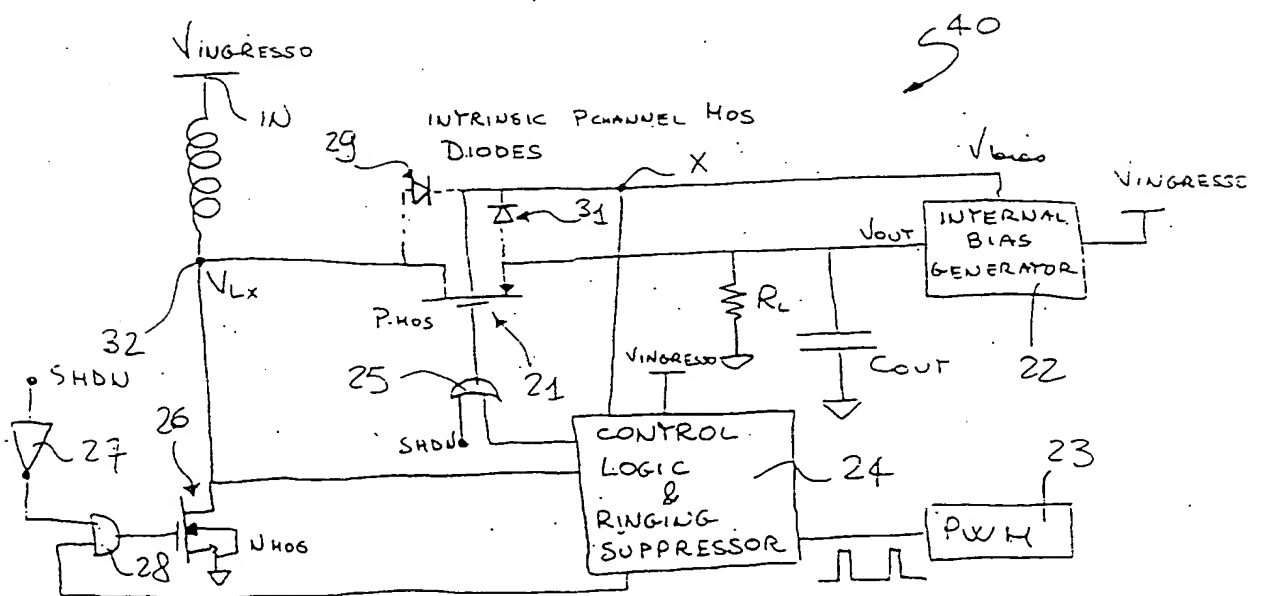 40
VINGRESSO
IN
INTRINSIC PCHANNEL MOS
DIODES
29
X
Vbias
VINGRESSE
31
INTERNAL
BIAS
GENERATOR
VOUT
VLX
32
P.MOS
21
RL
COUT
22
25
VINGRESSO
SHDN
27
26
SHDN
CONTROL
LOGIC
&
RINGING
SUPPRESSOR
24
23
PWM
28
NMOS